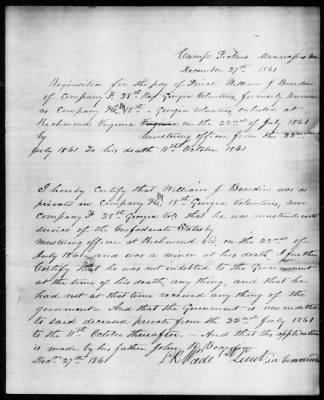 Camp Manassas
December 27th 1861
Requisition for the pay of Private William J Beardin
of Company F 28th Reg Georgia Volunteers, formerly known
as Company 18th Georgia Volunteers enlisted at
Richmond Virginia Virginia on the 22nd of July 1861
by mustering officer from the 22nd
July 1861 To his death 11th October 1861
I hereby Certify that William J Beardin was a
private in Company 18th Georgia Volunteers, now
Company F 28th Georgia Vols that he was mustered into
service of the Confederate States by
mustering officer at Richmond Va, on the 22nd of
July 1861 and was a minor at his death. I further
Certify that he was not indebted to the Government
at the time of his death, any thing, and that he
had not at that time received any thing of the
government - And that the Government is now indebted
to said deceased private from the 22nd July 1861
to the 11th October thereafter - And that this application
is made by his father John
Decr 27th 1861 Wade 1st Lieut, in Command